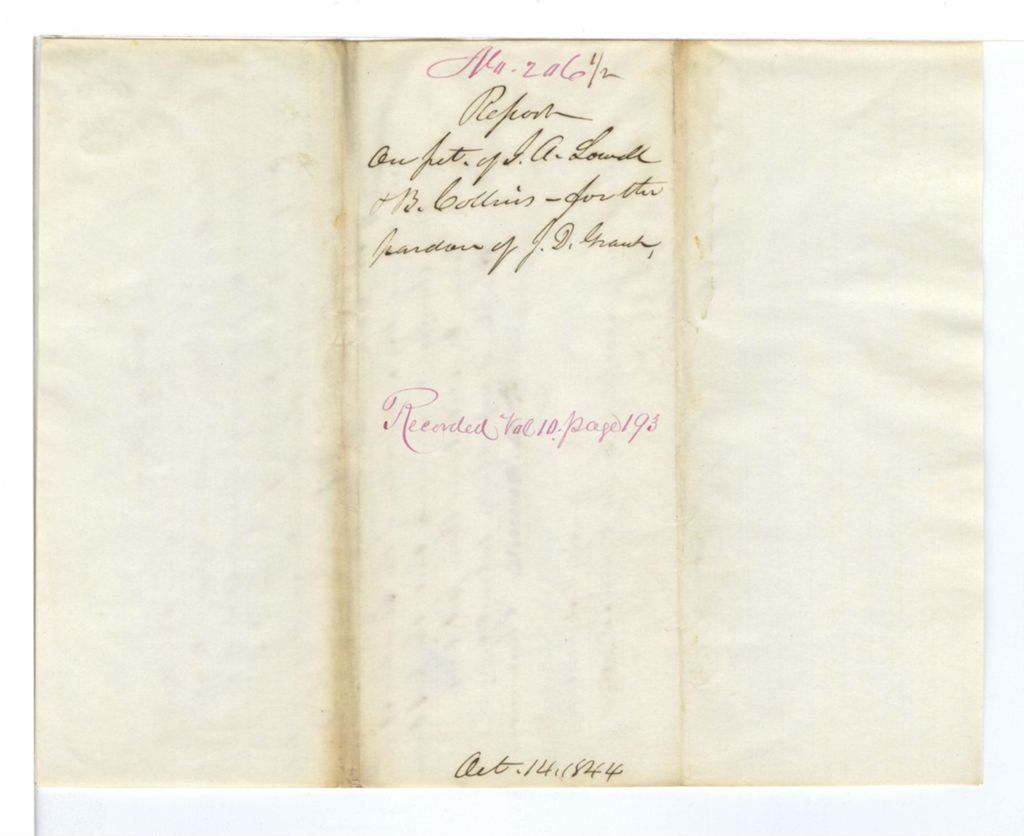 No. 206 1/2
Report
On pet. of J. A. Lowell
& B. Collins - for the
pardon of J. D. Grant,
Recorded Vol 10. page 193
Oct. 14. 1844